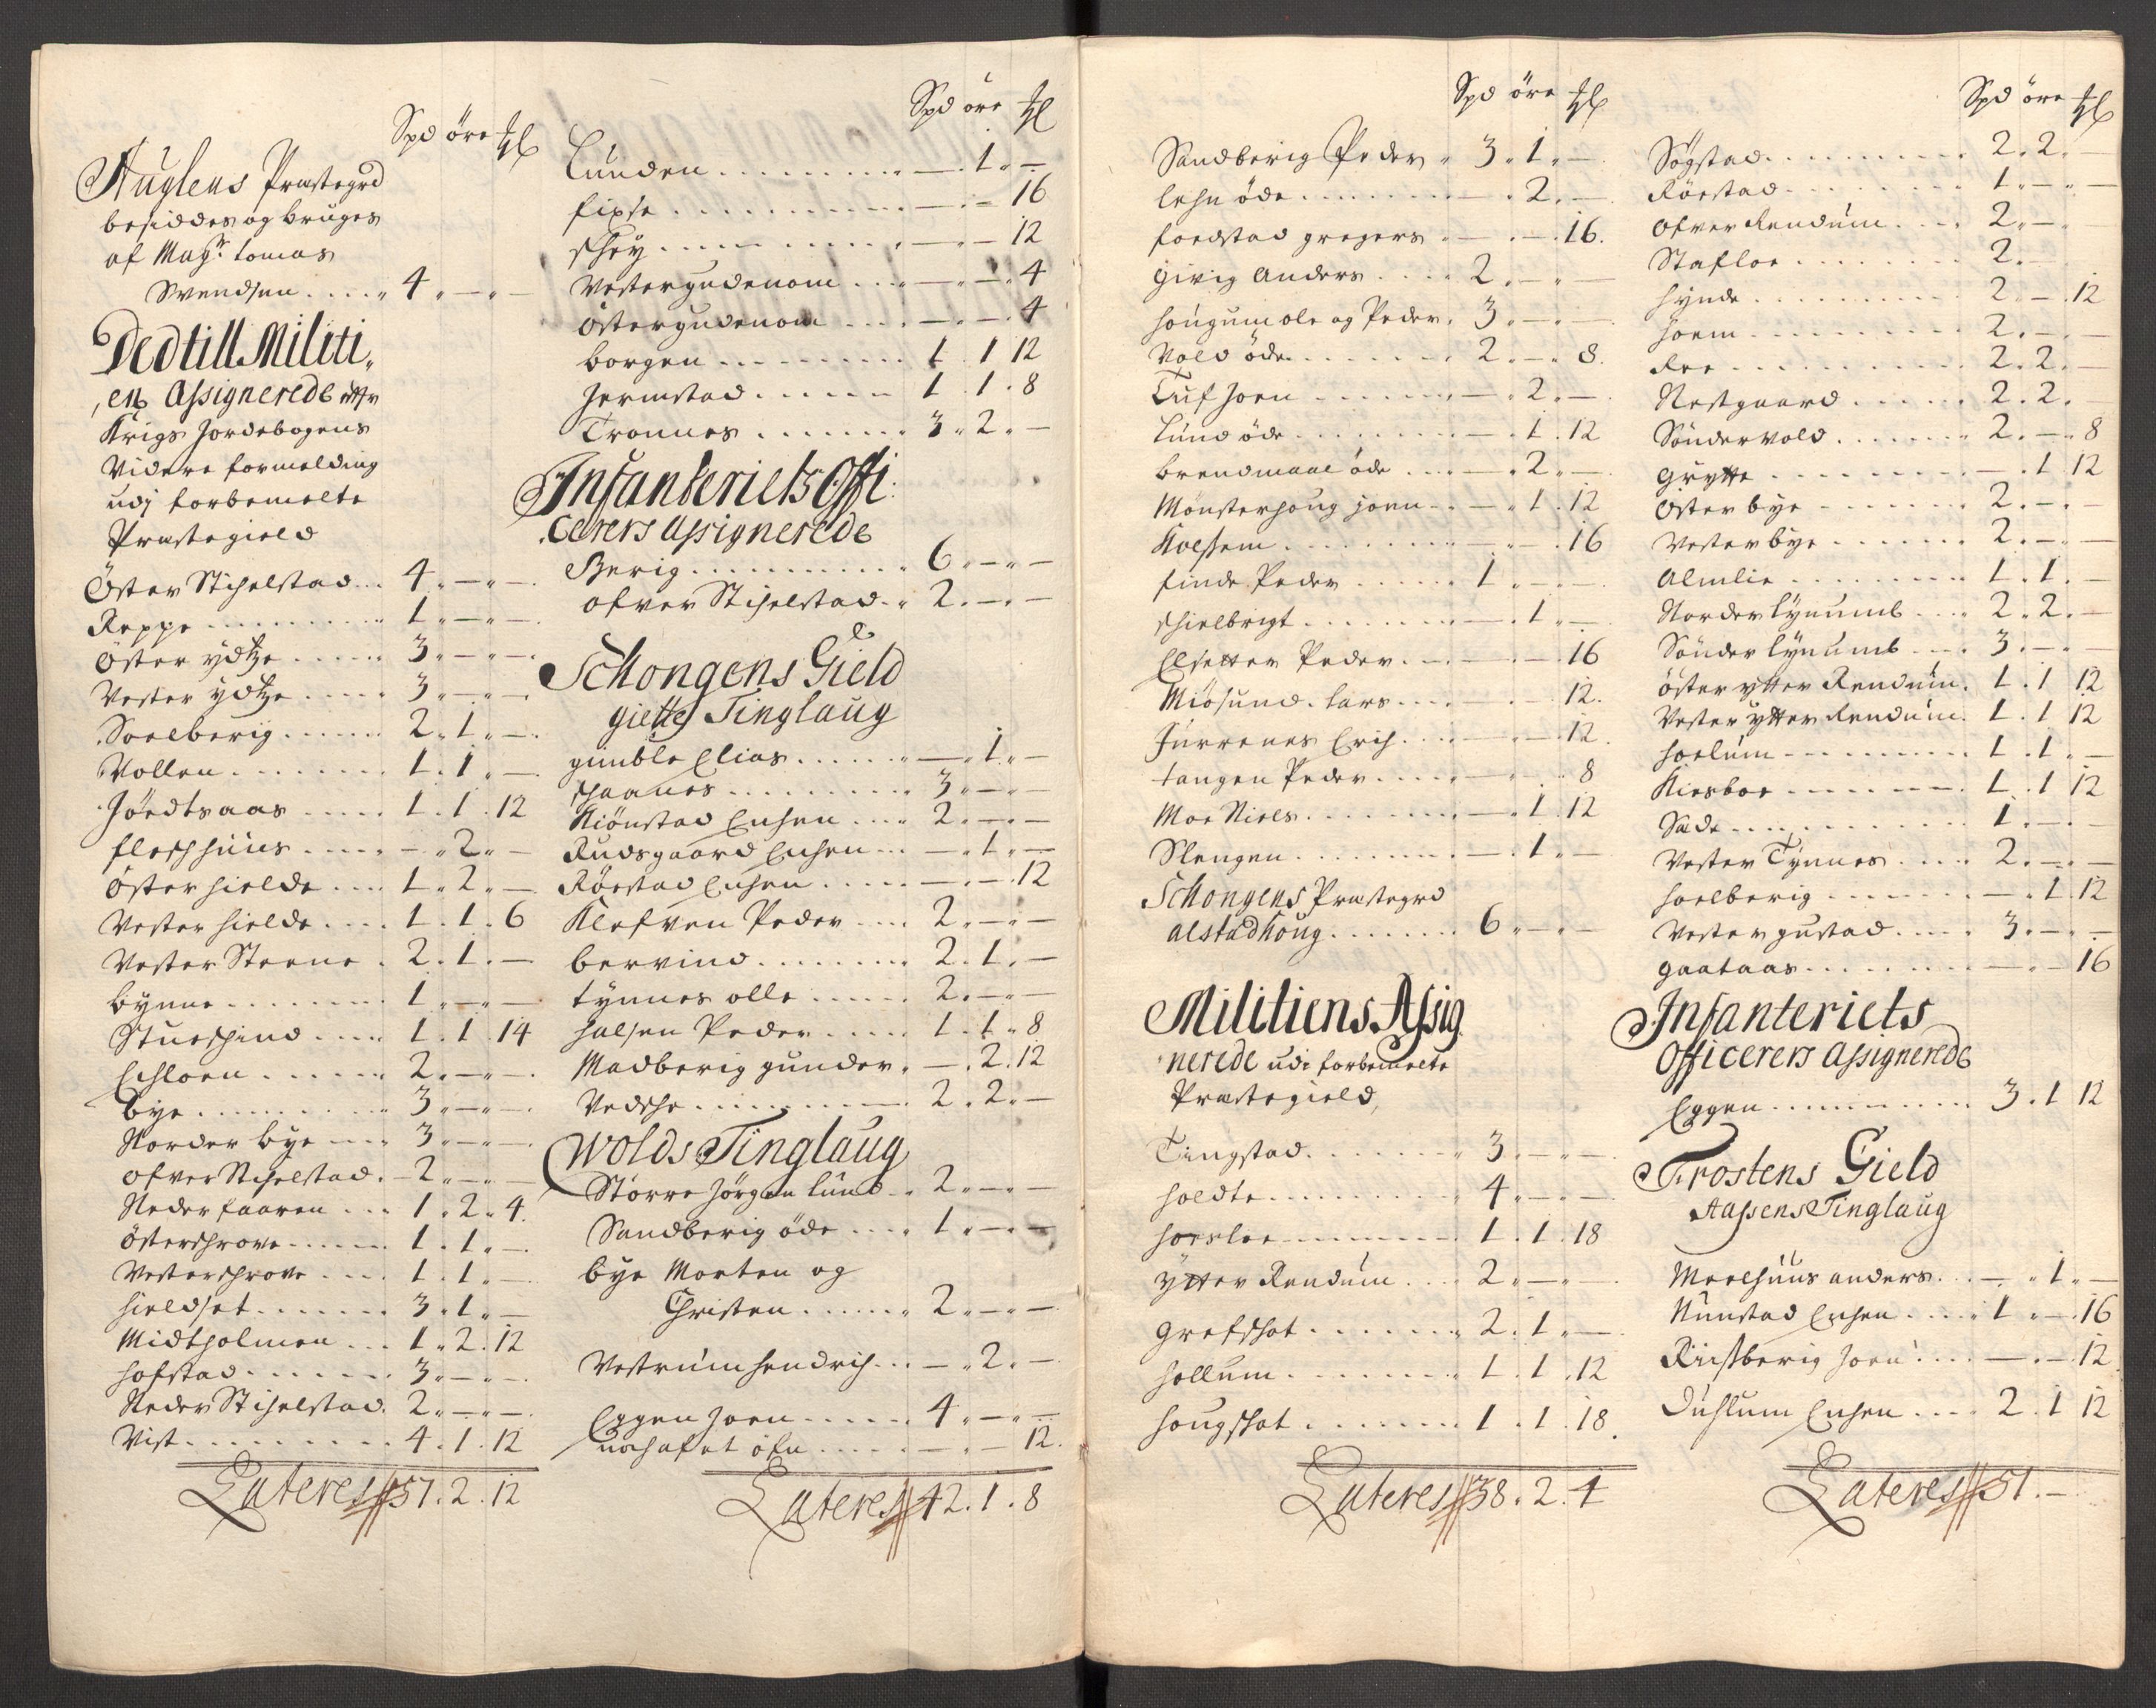 Spd öre
Auglens Præstegrd
besiddes og bruges
af Magr. tomas
Svendsen . . . . 4 . — . —
Ded till Militi,
en Assignerede
Krigs Jordebogens
Videre formelding
udj forbemelte
Præstegield
Öster Stihelstad . . 4 . — . —
Reppe . . . . . 1 . — . —
Öster ydtze . . . . 3 . — . —
Vester ydtze . . . . 3 . — . —
Soelberig . . . . . 2 . 1 . —
Vollen . . . . . 1 . 1 . —
Jördtsaas . . . . 1 . 1 . 12
fleshhuus . . . . — . 2 . —
Öster hielde . . . 1 . 2 . —
Vester hielde . . . 1 . 1 . 6
Vester Steene . 2 . 1 . —
bynne . . . . . 1 . — . —
Stueshind . . . 1 . 1 . 14
Echloen . . . . . 2 . — . —
bye . . . . . . 3 . — . —
Norder bye . . . 3 . — . —
ofver Stihelstad . 2 . — . —
Neder faaren . . 1 . 2 . 4
Östershrove . . . 1 . 1 . —
Vestershrove . . . 1 . 1 . —
hieldset . . . . . 3 . 1 . —
Midtholmen . . 1 . 2 . 12
hofstad . . . . . 3 . — . —
Neder Stihelstad 2 . — . —
Vist . . . . . . 4 . 1 . 12
Lateres 57 . 2 . 12
Spd öre
Lunden . . . . . — . 1 . —
fixse . . . . . . — . — 16
shey . . . . . . — . — 12
Vestergudenom . . . — . — . 4
Östergudenom . . . — . — . 4
borgen . . . . . 1 . 1 12
Jermstad . . . . . 1 . 1 . 8
Tronnes . . . . . 3 . 2 . —
Infanteriets Offi
cerers Assignerede
Berig . . . . . . 6 . — . —
ofver Stihelstad . . 2 . — . —
Schongens Gield
giettes Tinglaug
gimble Elias . . . . — . 1 . —
shaanes . . . . . 3 . — . —
Niönstad Enhen . . . 2 . — . —
Rudsgaard Enhen . . . — . 1 . —
Röestad Enhen . . . — . — . 12
Klefven Peder . . . 2 . — . —
bervind . . . . . 2 . 1 . —
tynnes olle . . . . 2 . — . —
halsen Peder . . . . 1 . 1 . 8
Madberig gunder . — . 2 . 12
Vedshe . . . . . 2 . 2 . —
Wolds Tinglaug
Större Jörgen lund . 2 . — . —
Sandberig öde . . . 1 . — . —
bye Morten og
Christen . . . . 2 . — . —
Vestrum hendrich . . . — . 2 . —
Eggen Joen . . . . 4 . — . —
. . . . — . — 12
Lateres 42 . 1 . 8
Spd öre
Sandberig Peder . 3 . 1 . —
lehn öde . . . . . — . 2 . —
foedstad gregers . — . — . 16
givig Anders . . . 2 . — . —
hougum ole og Peder . 3 . — . —
Vold öde . . . . . 2 . — . 8
Tuf Joen . . . . . — . 2 . —
Lund öde . . . . . — . 1 . 12
brendmaal öde . . . — . 2 . —
Mönsterhoug joen . . — . 1 . 12
Kolssem . . . . . — . — . 16
finde Peder . . . . 1 . — . —
shielbrigt . . . . . — . 1 . —
Elsetter Peder . . . — . — 16
Miösund lars . . . — . — 12
Jurrenes Erich . . . — . — 12
tangen Peder . . . . — . — 8
Moe Niels . . . . . — . 1 . 12
Slengen . . . . . — . 1 . —
Schongens Præstegrd
alstadhoug . . . . . 6 . — . —
Militiens Assig
nerede udi forbemelte
Præstegield
Tingstad . . . . . 3 . — . —
holdte . . . . . . 4 . — . —
horsloe . . . . . 1 . 1 . 18
Ytter Rendum . . . 2 . — . —
grefshot . . . . . 2 . 1 . —
hollum . . . . . 1 . 1 . 12
hougshot . . . . . 1 . 1 . 18
Lateres 38 . 2 . 4
Spd öre
Sögstad . . . . . 2 . 2 . —
Röestad . . . . . 1 . — . —
ofver Rendum . . . 2 . — .
Stafloe . . . . . 2 . —
hynde . . . . . . 2 . — . 12
hoem . . . . . . 2 . — . —
Ree . . . . . . 2 . 2 . —
Nestgaard . . . . . 2 . 2 . —
Söndervold . . . . . 2 . — . 8
Grytte . . . . . . — . 1 12
Öster bye . . . . . 2 . — . —
Vester bye . . . . . 2 . — . —
Almlie . . . . . . 1 . 1 . —
Norder lynumb . . . 2 . 2 . —
Sönder lynumb . . . 3 . — . —
öster ytter Rendum . 1 . 1 12
Vester ytter Rendum . 1 . 1 12
hoelum . . . . . 1 . 1 . —
Kirsboe . . . . . 1 . 1 12
Sade . . . . . . 1 . — . —
Vester Tynnes . . . 2 . — . —
hoelberig . . . . . — . 1 . 12
Vester gustad . . . . 3 . — . —
gaataas . . . . . — . — 16
Infanteriets
Officerers Assignerede
Eggen . . . . . . 3 . 1 12
Frostens Gield
Aassens Tinglaug
Moelhuus anders . . — . 1 . —
Nunstad Enhen . . . 1 . — . 16
Rinssberig Joen . . . — . — . 12
Duhlum Enhen . . . 2 . 1 12
Lateres 51 . —